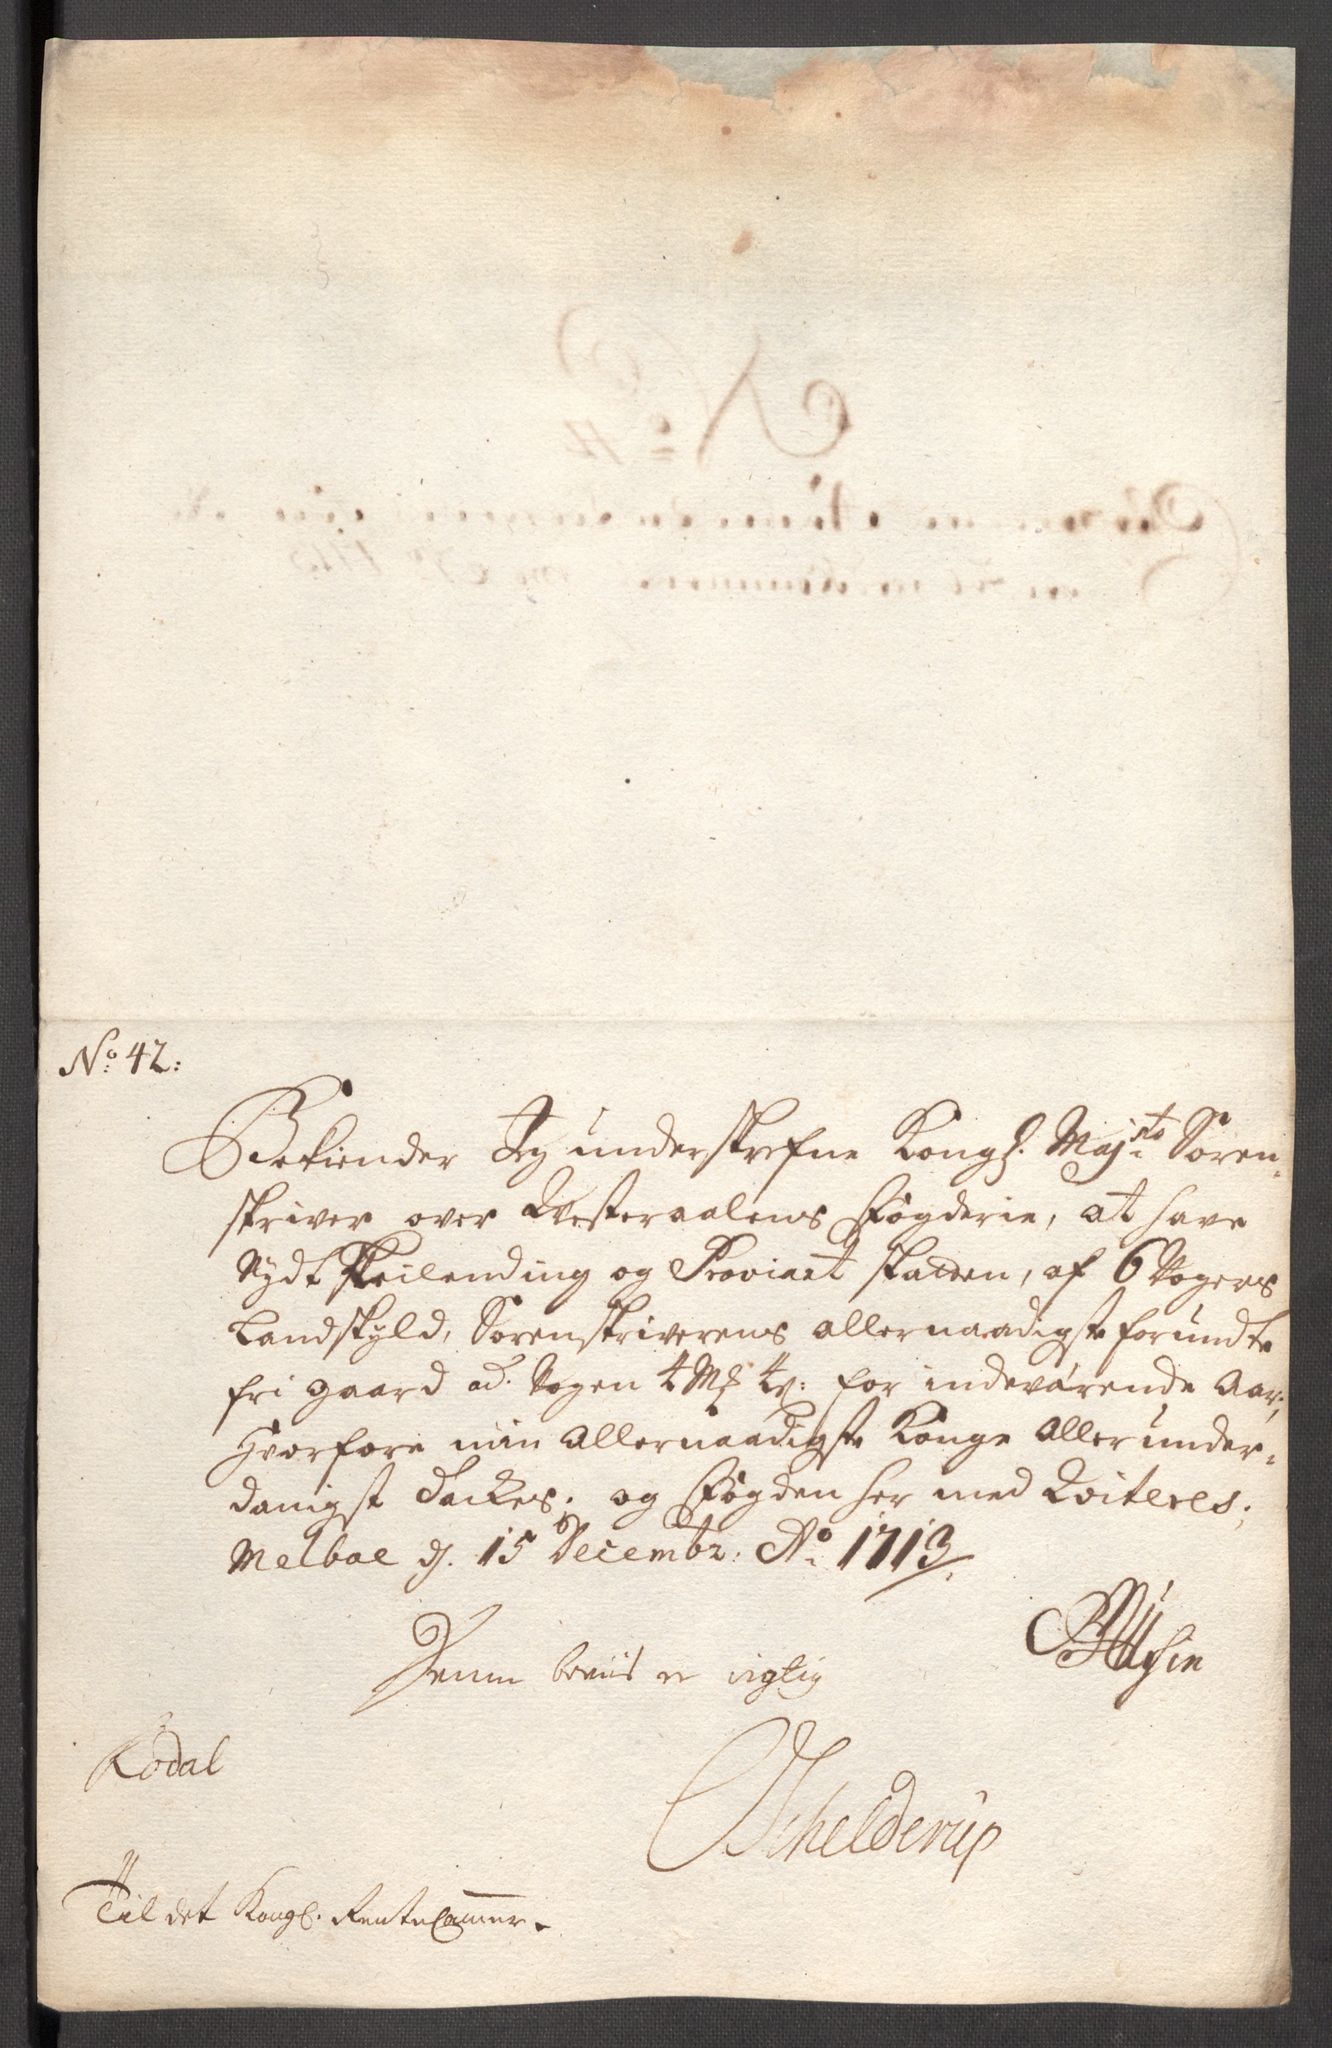 No: 42:
Bekiender Jeg underskrefne Kongl. Majts Soren-
skriver over Westeraalens Fögderie, at have
Nydt Skeilending og Proviant skatten, af 6 Vogers
Landskyld, Sorenskriverens allernaadigste forundte
fri gaard ad. Vogen 4 Mk for indevärende Aar;
Hvorfore min Allernaadigste Konge Allerunder-
danigst Tackes; og Fögden her med Qviteres;
Melboe d. 15 Decembr: Ao 1713
Denne beviis er rigtig
Rödal
Schelderup
Til det Kongl. RenteCammer.